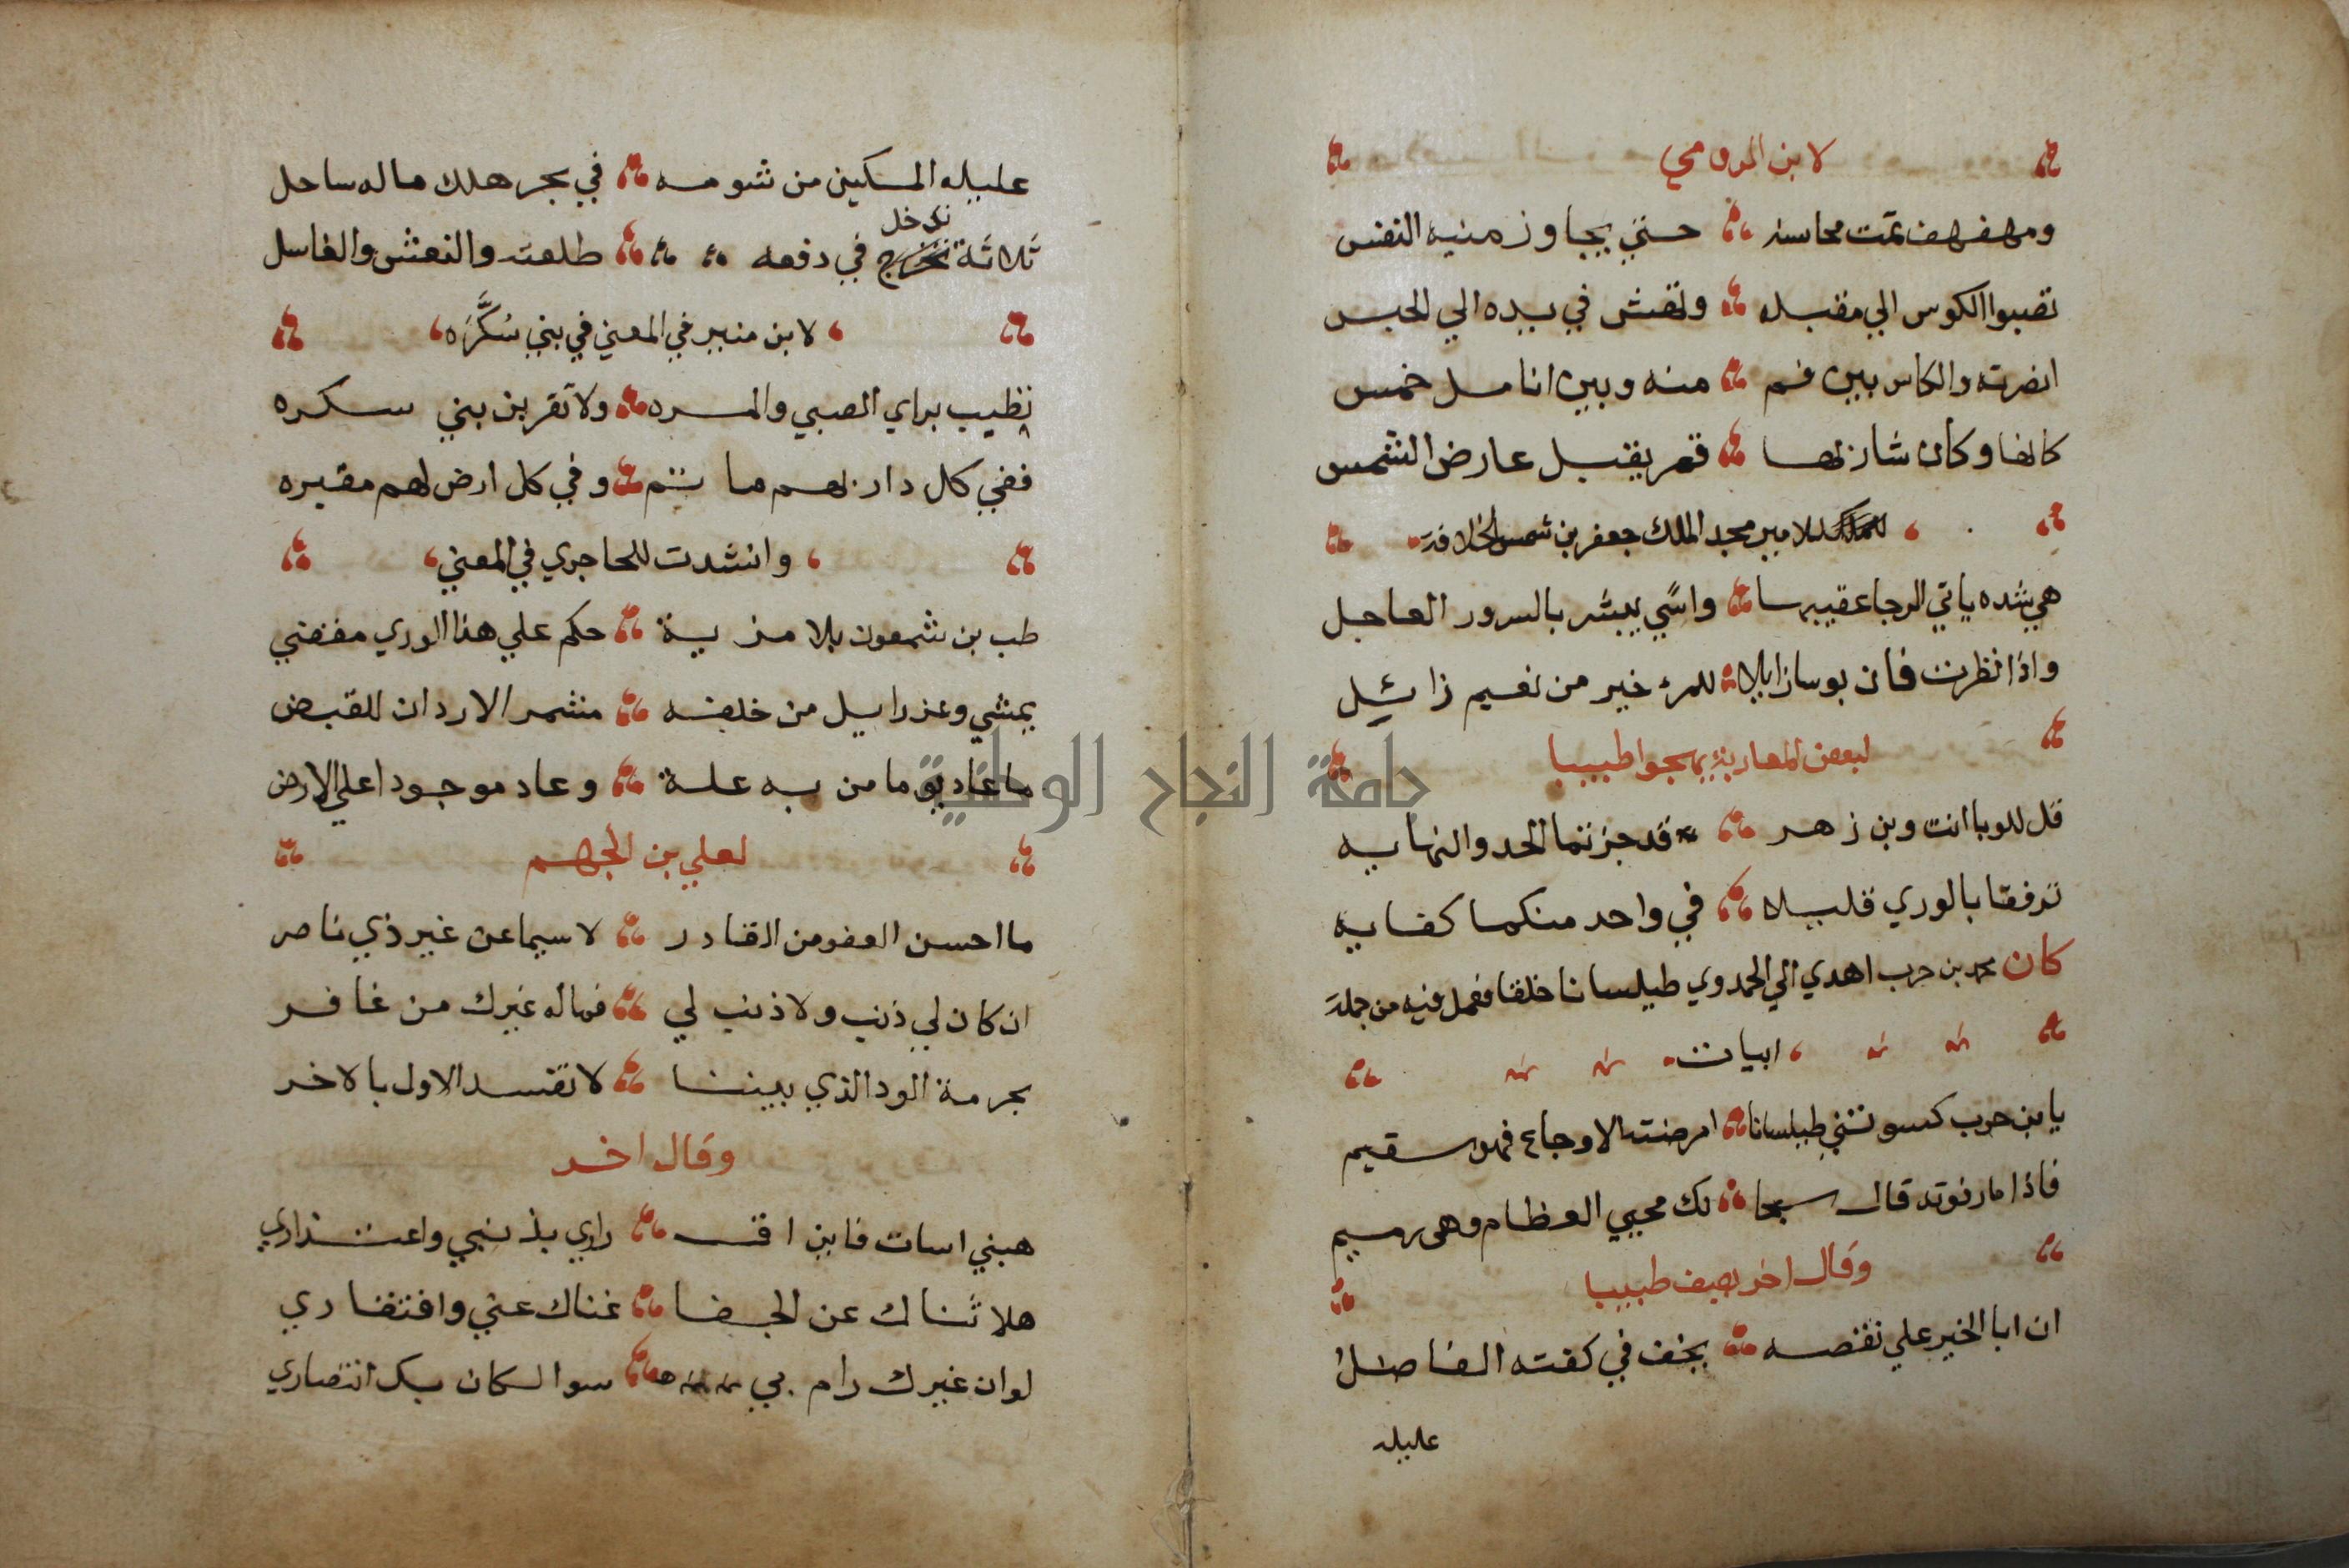 لابن الرومي
ومهفهف تمت محاسنه حتي يجاوز منيه النفس
تصبوا الكوس الي مقبله وتهش في يده الي الحبس
ابصرته والكاس بين فم منه وبين انامل خمس
كانها وكان شاربها قمر يقبل عارض الشمس
للامير مجد الملك جعفر بن شمس الخلافة
هي شده ياتي الرجا عقيبها واسًي يبشر بالسرور العاجل
واذا نظرت فان بوسا زايلا للمرء خير من نعيم زائل
لبعض المعاربة يهجوا طبيبا
قل للوبا انت وبن زهر قد جزتما الحد والنهايه
ترفقا بالوري قليلا في واحد منكما كفايه
كان محمد بن حرب اهدي الي الحمدوي طيلسانا خلقا فعمل فيه من جملة
ابيات
يابن حرب كسوتني طيلسانا امرضته الاوجاع فهو سقيم
فاذا مارفوته قال سبحا نك محيي العظام وهى رميم
وقال اخر يصف طبيبا
ان ابا الخير علي نقصه يخف في كفته الفاضل
عليله
عليله المسكين من شومه في بحر هلك ماله ساحل
تدخل
ثلاثة تخرج في دفعه طلعته والنعش والغاسل
لابن منير في المعني في بني سُكَّرَه
تطيب براي الصبي والمره ولا تقربن بني سكره
ففي كل دار لهم ماتم وفي كل ارض لهم مقبره
وانشدت للحاجري في المعني
طب بن شمعون بلا مزية حكم علي هذا الوري مفضي
يمشي وعزراييل من خلفه منشمر الاردان للقبض
ما عاد يوما من به علة وعاد موجودا علي الارض
لعلي بن الجهم
ما احسن العفو من القادر لا سيما عن غير ذي ناصر
ان كان لي ذنب ولا ذنب لي فماله غيرك من غافر
بحرمة الود الذي بيننا لا تفسد الاول بالاخر
وقال اخر
هبني اسات فاين اقـ راري بذنبي واعتذاري
هلا ثناك عن الجفا غناك عني وافتقاري
لوان غيرك رام بي سوا لكان بك انتصاري
جامعة النجاح الوطنية